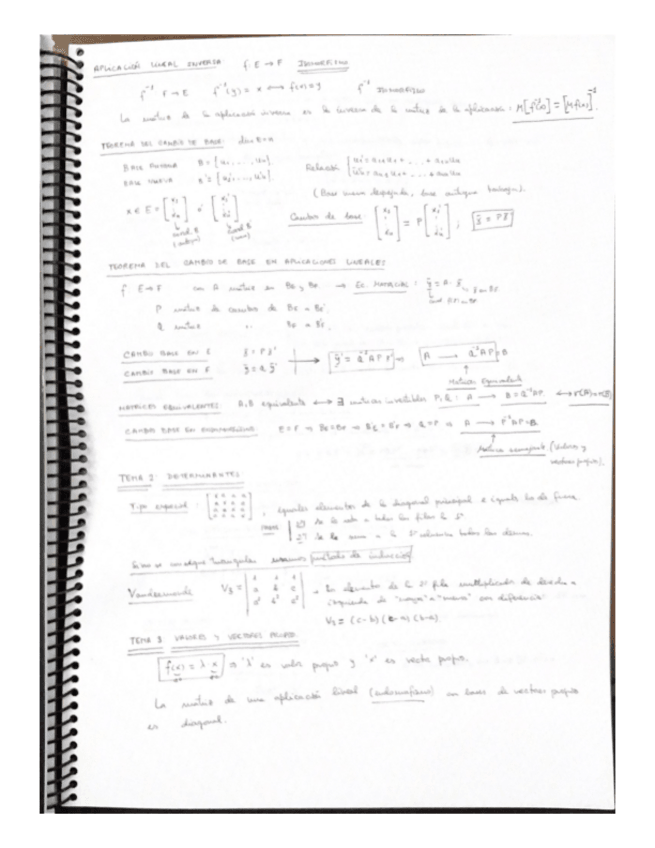 APLICACIÓN LINEAL INVERSA f: E → F ISOMORFISMO
f⁻¹: F → E f⁻¹(y) = x ⟷ f(x) = y f⁻¹ ISOMORFISMO
La matriz de la aplicación inversa es la inversa de la matriz de la aplicación: M[f⁻¹(x)] = [M f(x)]⁻¹
TEOREMA DEL CAMBIO DE BASE: dim E = n
BASE ANTIGUA B = {u₁, ..., uₙ}
BASE NUEVA B' = {u₁', ..., uₙ'}
Relación
(Base nueva despejada, base antigua trabaja).
x ∈ E =
Cambio de base: = P ; x̄ = P x̄'
coord. B coord. B'
TEOREMA DEL CAMBIO DE BASE EN APLICACIONES LINEALES:
f: E → F con A matriz en B_E y B_F → Ec. MATRICIAL: ȳ = A · x̄
P matriz de cambio de B_E a B_E'.
Q matriz " B_F a B_F'.
CAMBIO BASE EN E x̄ = P x̄'
ȳ' = Q⁻¹ A P x̄' A → Q⁻¹AP = B
CAMBIO BASE EN F ȳ = Q ȳ'
Matrices Equivalentes
MATRICES EQUIVALENTES: A, B equivalentes ⟷ ∃ matrices invertibles P, Q: A → B = Q⁻¹AP ⟷ r(A) = r(B)
CAMBIO BASE EN ENDOMORFISMOS: E = F ⇒ B_E = B_F ⇒ B_E' = B_F' ⇒ Q = P ⇒ A → P⁻¹AP = B
Matrices semejantes (Valores y
vectores propios).
TEMA 2: DETERMINANTES
Tipo especial: , iguales elementos de la diagonal principal e iguales los de fuera.
1º Se le resta a todas las filas la 1ª
2º Se le suma a la 1ª columna todas las demás.
Si no se consigue triangular usamos método de inducción
Vandermonde V₃ = | 1 1 1 |
| a b c |
| a² b² c² | → Los elementos de la 2ª fila multiplicados de derecha a
izquierda de "mayor" a "menor" con diferencia:
V₃ = (c-b)(c-a)(b-a)
TEMA 3: VALORES Y VECTORES PROPIOS
f(x) = λ · x ⇒ "λ" es valor propio y "x" es vector propio.
La matriz de una aplicación lineal (endomorfismo) en bases de vectores propios
es diagonal.